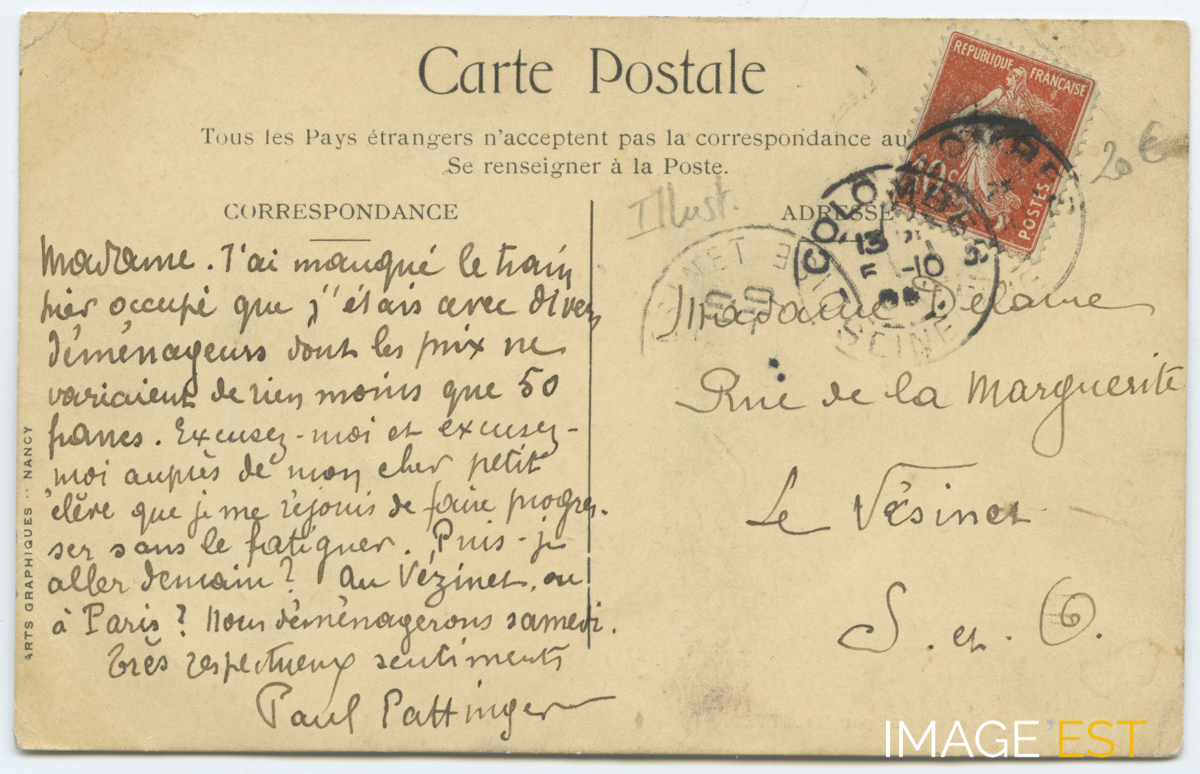 Carte Postale
Tous les Pays étrangers n'acceptent pas la correspondance au
Se renseigner à la Poste.
CORRESPONDANCE
Madame. J'ai manqué le train
hier occupé que j'étais avec divers
déménageurs dont les prix ne
variaient de rien moins que 50
francs. Excusez-moi et excusez-
moi auprès de mon cher petit
élève que je me réjouis de faire progres-
ser sans le fatiguer. Puis-je
aller demain? Au Vézinet, ou
à Paris? Nous déménagerons samedi.
très respectueux sentiments
Paul Pattinger
ARTS GRAPHIQUES :: NANCY
Illust.
ADRESSE
REPUBLIQUE FRANÇAISE
10c
POSTES
20 €
COLOMBES
13
-10
SEINE
Madame Delarue
Rue de la Marguerite
Le Vésinet
S. et O.
IMAGE EST